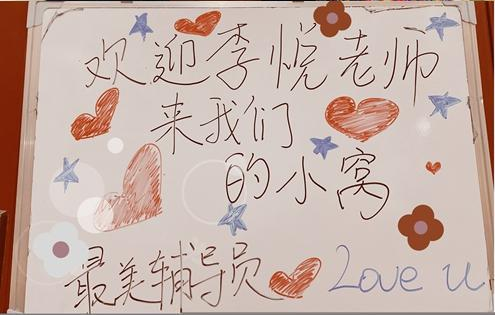 欢迎李悦老师
来我们
的小窝
最美辅导员
Love u